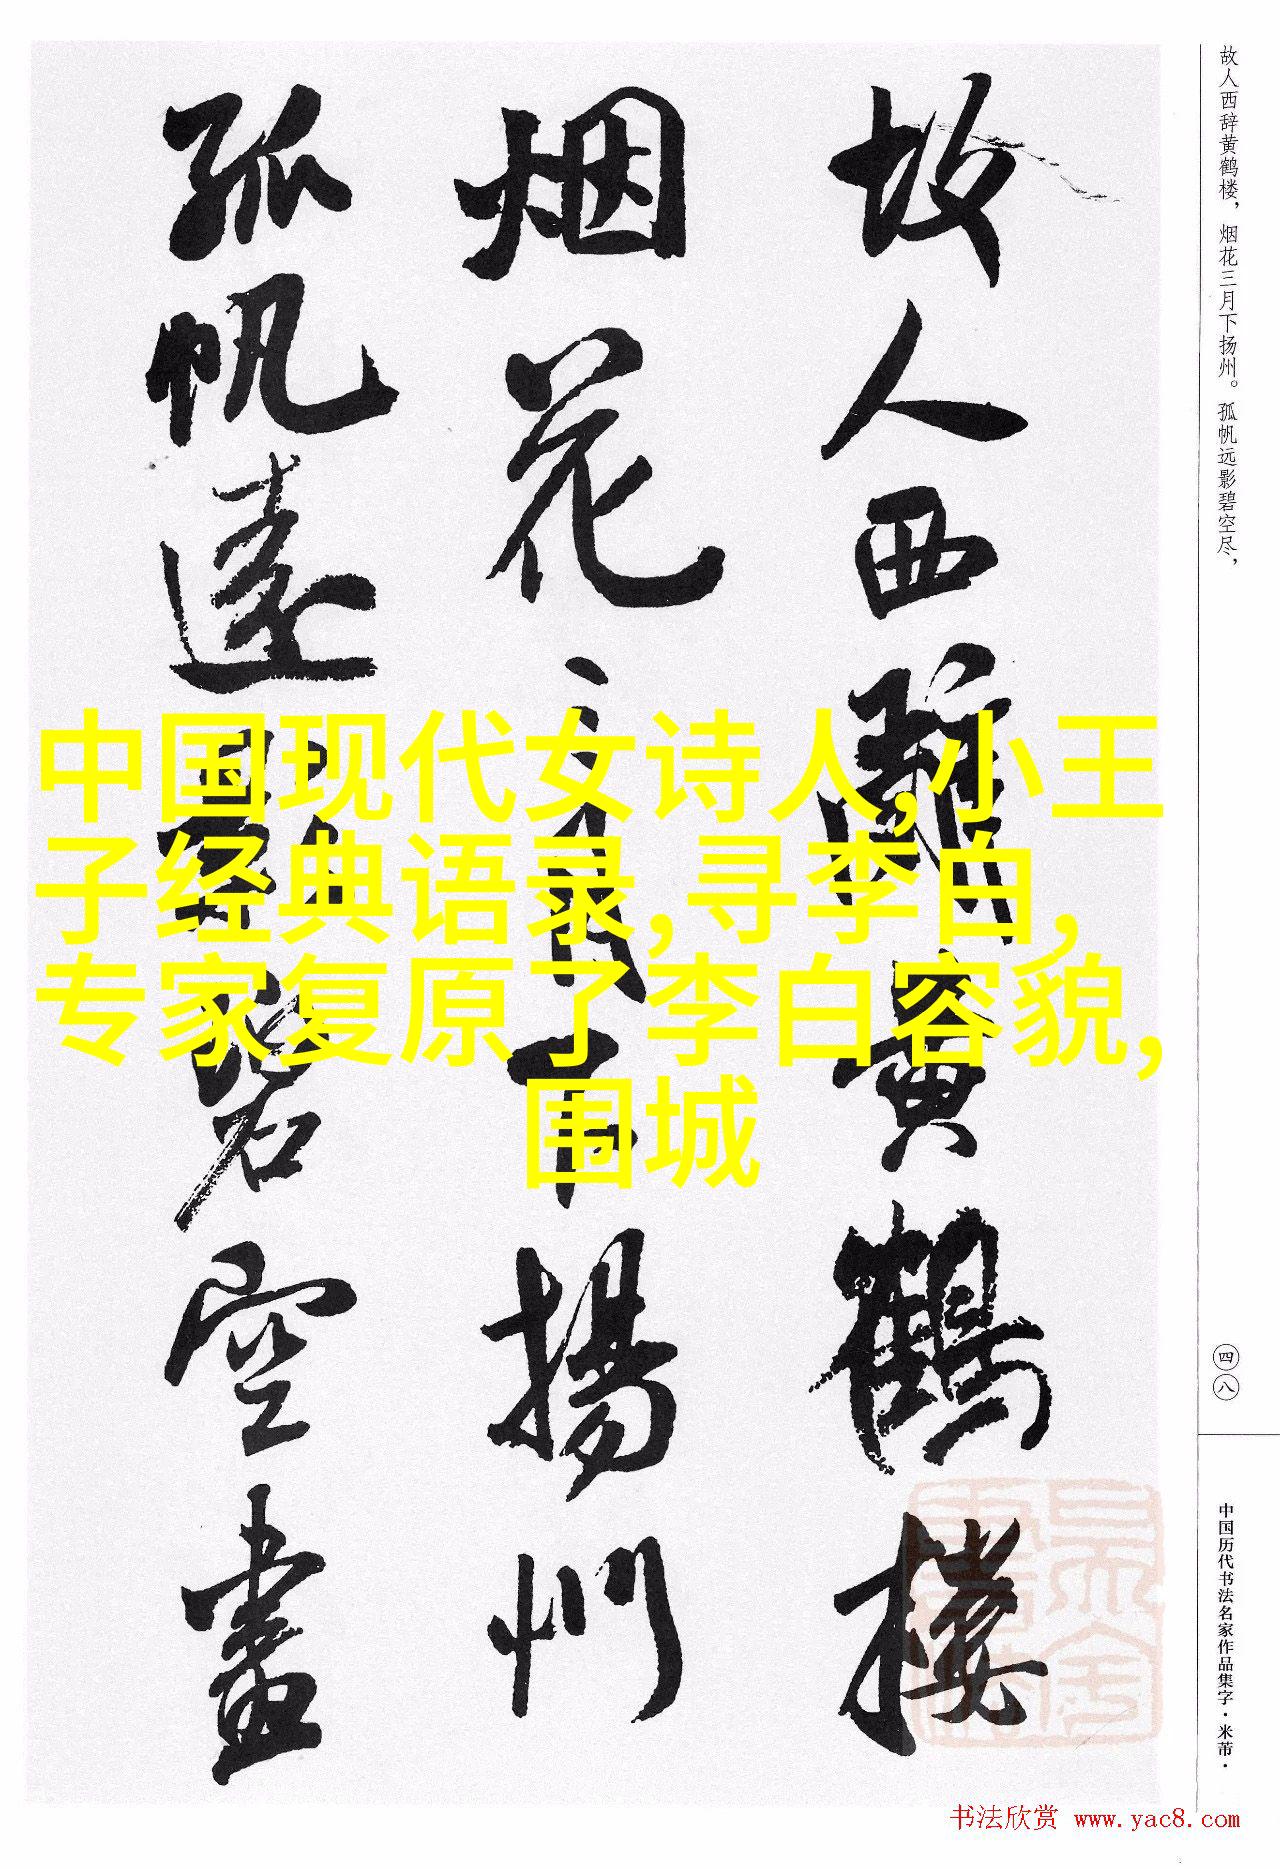 故人西辞黄鹤楼
烟花三月下扬州
孤帆远影碧空尽
故人西辞黄鹤楼，烟花三月下扬州。孤帆远影碧空尽，
中国现代女诗人,小王
子经典语录,寻李白,
专家复原了李白容貌,
围城
四八
中国历代书法名家作品集字·米芾·
书法欣赏 www.yac8.com